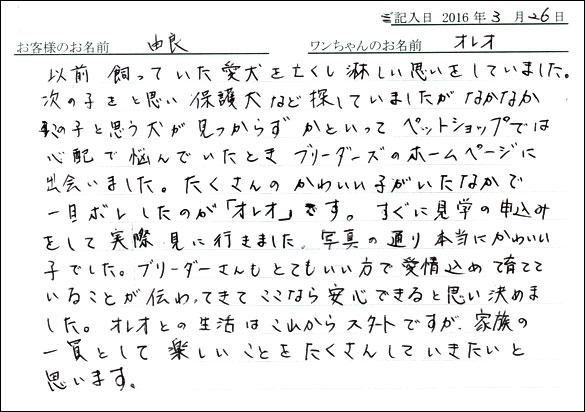 ご記入日 2016年3月26日
お客様のお名前 由良 ワンちゃんのお名前 オレオ
以前 飼っていた愛犬を亡くし淋しい思いをしていました。
次の子をと思い 保護犬など探していましたが なかなか
この子と思う犬が 見つからず かといって ペットショップでは
心配で悩んでいたとき ブリーダーズのホームページに
出会いました。たくさんの かわいい子がいたなかで
一目ボレしたのが「オレオ」です。すぐに見学の申込み
をして 実際 見に行きました。写真の通り本当にかわいい
子でした。ブリーダーさんも とてもいい方で愛情込め育てて
いることが伝わってきて ここなら安心できると思い決めま
した。オレオとの生活はこれからスタートですが、家族の
一員として 楽しいことをたくさんしていきたいと
思います。